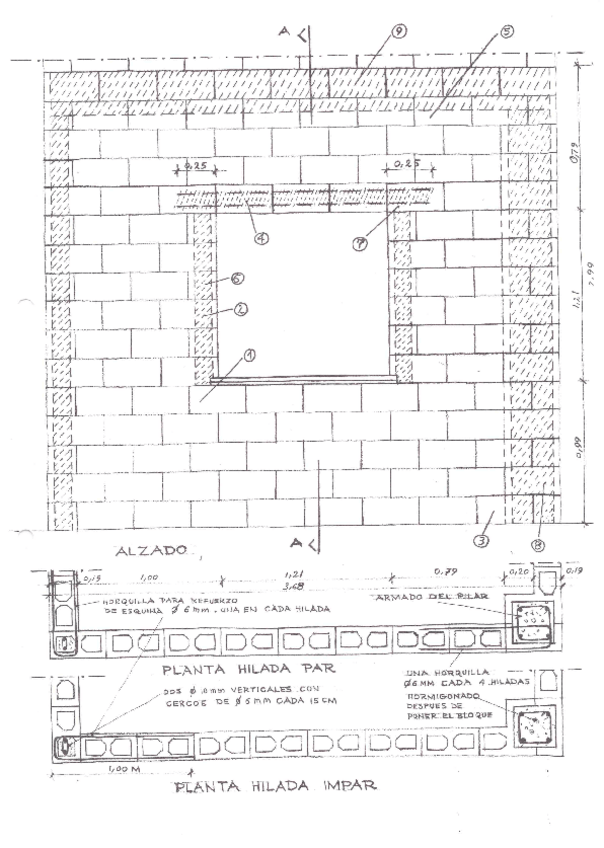 A
9
5
0,25
0,25
0,79
4
7
6
2
1,21
2,99
1
0,99
3
8
ALZADO
A
0,19
1,00
1,21
0,79
0,20
0,19
3,68
HORQUILLA PARA REFUERZO
DE ESQUINA Ø 6 mm. UNA EN CADA HILADA
ARMADO DEL PILAR
PLANTA HILADA PAR
UNA HORQUILLA
Ø6 MM CADA 4 HILADAS
DOS Ø mm VERTICALES CON
CERCOS DE Ø 5 mm CADA 15 CM
HORMIGONADO
DESPUES DE
PONER EL BLOQUE
1,00 M
PLANTA HILADA IMPAR